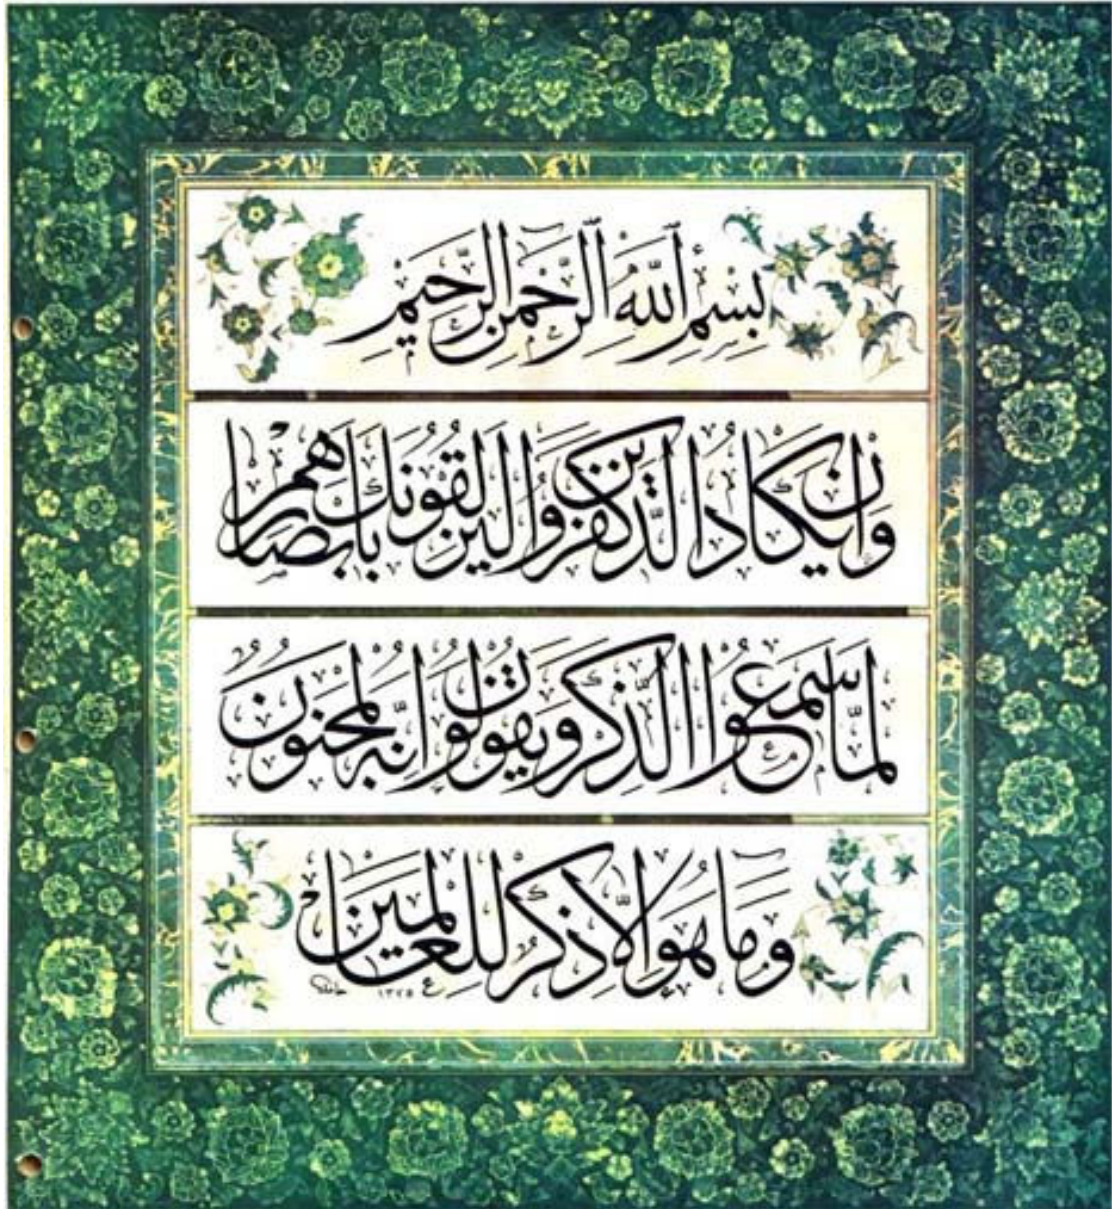 بِسْمِ ٱللَّهِ ٱلرَّحْمَنِ ٱلرَّحِيمِ
وَإِنْ يَكَادُ الَّذِينَ كَفَرُوا لَيُزْلِقُونَكَ بِأَبْصَارِهِمْ
لَمَّا سَمِعُوا الذِّكْرَ وَيَقُولُونَ إِنَّهُ لَمَجْنُونٌ
وَمَا هُوَ إِلَّا ذِكْرٌ لِلْعَالَمِينَ
١٣٢٥